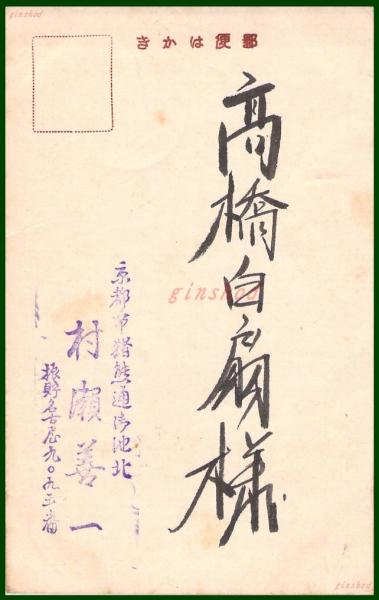 ginshod
きかは便郵
高橋白扇様
ginshod
京都市猪熊通御池北
村瀬善一
振替名古屋九〇九五番
ginshod